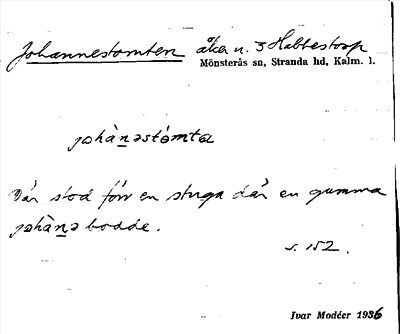 Johannestomten åker n. 3 Habbestorp
Mönsterås sn, Stranda hd, Kalm. l.
johànəstómta
Där stod förr en stuga där en gumma
jəhànə bodde.
s. 152.
Ivar Modéer 1936